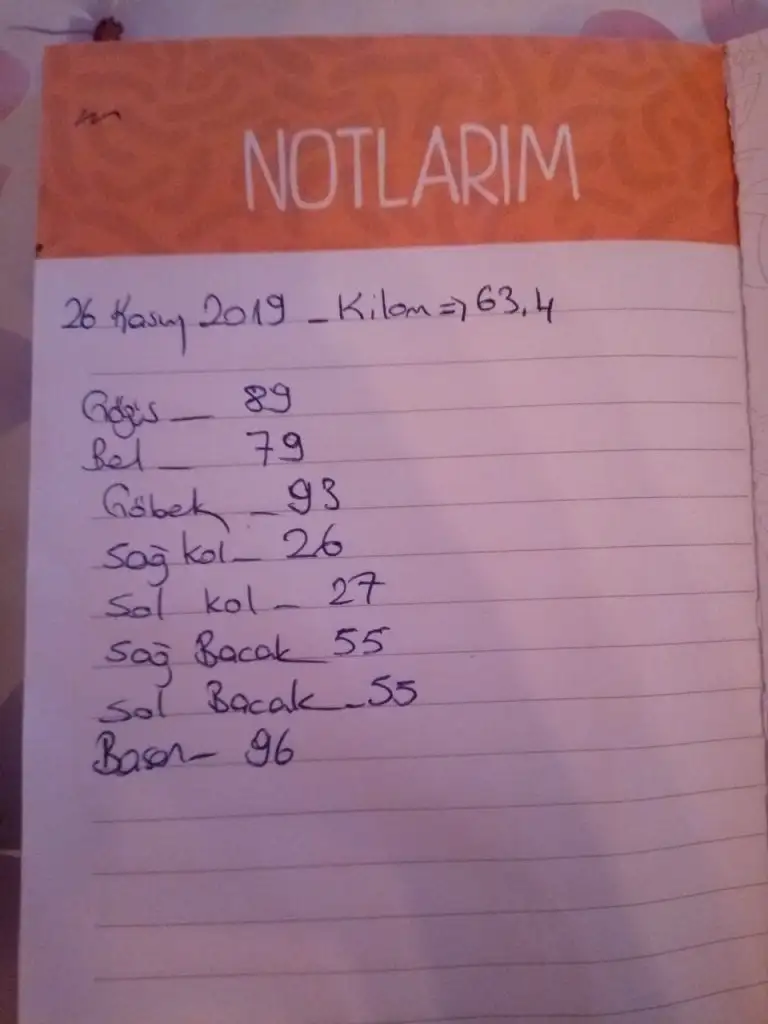 NOTLARIM
26 Kasım 2019 - Kilom => 63,4
Göğüs - 89
Bel - 79
Göbek - 93
Sağ kol - 26
Sol kol - 27
Sağ Bacak 55
Sol Bacak - 55
Basen - 96